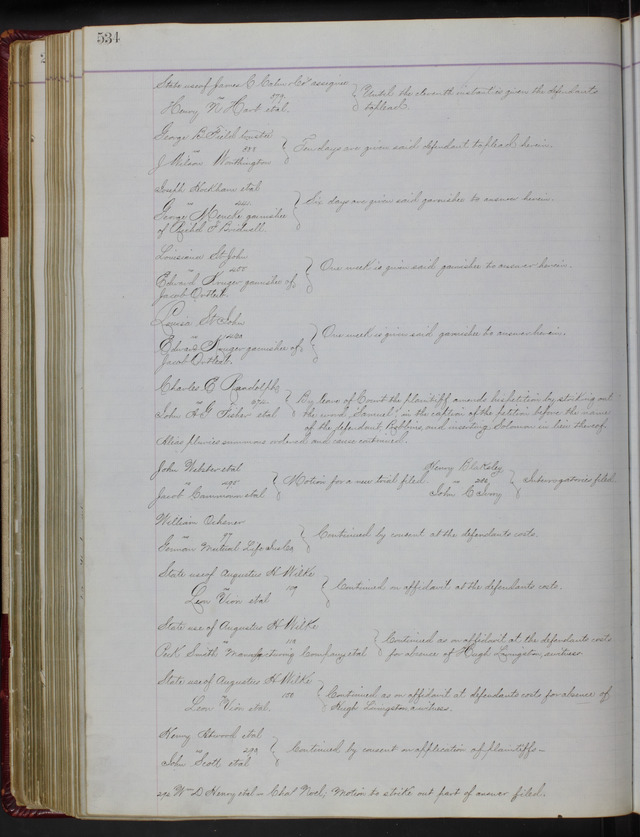 534
State use of James C. Calm Co assignee
vs
Henry N. Hart etal
Until the eleventh instant is given the defendants
to plead.
George B. Field trustee
vs
J Wilson Worthington
Ten days are given said defendant to plead herein.
Joseph Rockham etal
vs
George Mencke garnishee
of F Bridwell.
Six days are given said garnishee to answer herein.
Louisiana St John
vs
Edward Kruger garnishee of
Jacob
One week is given said garnishee to answer herein.
Louisa St John
vs
Edward Kruger garnishee of
Jacob
One week is given said garnishee to answer herein.
Charles C Randolph
vs
John A. G. Fisher etal
By leave of Court the plaintiff amends his petition by striking out
the word "Samuel" in the caption of the petition before the name
of the defendant, Robbins, and inserting Solomon in lieu thereof.
Alias pluries summons ordered and cause continued.
John Webster etal
vs
Jacob Cammann etal
Motion for a new trial filed.
Henry Blakesley
vs
John
Interrogatories filed.
William Ochsner
vs 77
German Mutual Life Ins Co
Continued by consent at the defendants costs.
State use of Augustus H Wilke
vs 119
Leon Vion etal
Continued on affidavit at the defendants costs.
State use of Augustus H Wilke
Peck Smith Manufacturing Company etal
Continued as on affidavit at the defendants costs
for absence of Hugh Livingston, witness.
State use of Augustus H Wilke
Leon Vion etal.
Continued as on affidavit at defendants costs for absence of
Hugh Livingston a witness.
Henry Atwood etal
vs 293
John Scott etal
Continued by consent on application of plaintiffs—
Wm D Henry etal vs Chas Noel, Motion to strike out part of answer filed.